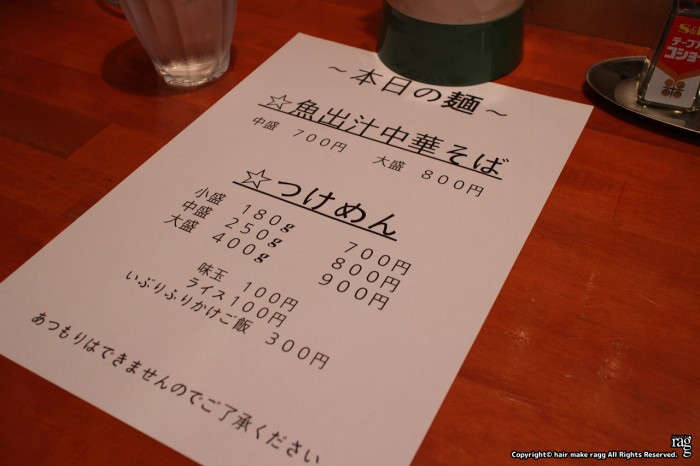 ～本日の麺～
☆魚出汁中華そば
中盛　７００円　大盛　８００円
☆つけめん
小盛　１８０ｇ　７００円
中盛　２５０ｇ　８００円
大盛　４００ｇ　９００円
味玉　１００円
ライス１００円
いぶりふりかけご飯　３００円
あつもりはできませんのでご了承ください
S&B
テーブル
コショー
ragg
Copyright© hair make ragg All Rights Reserved.